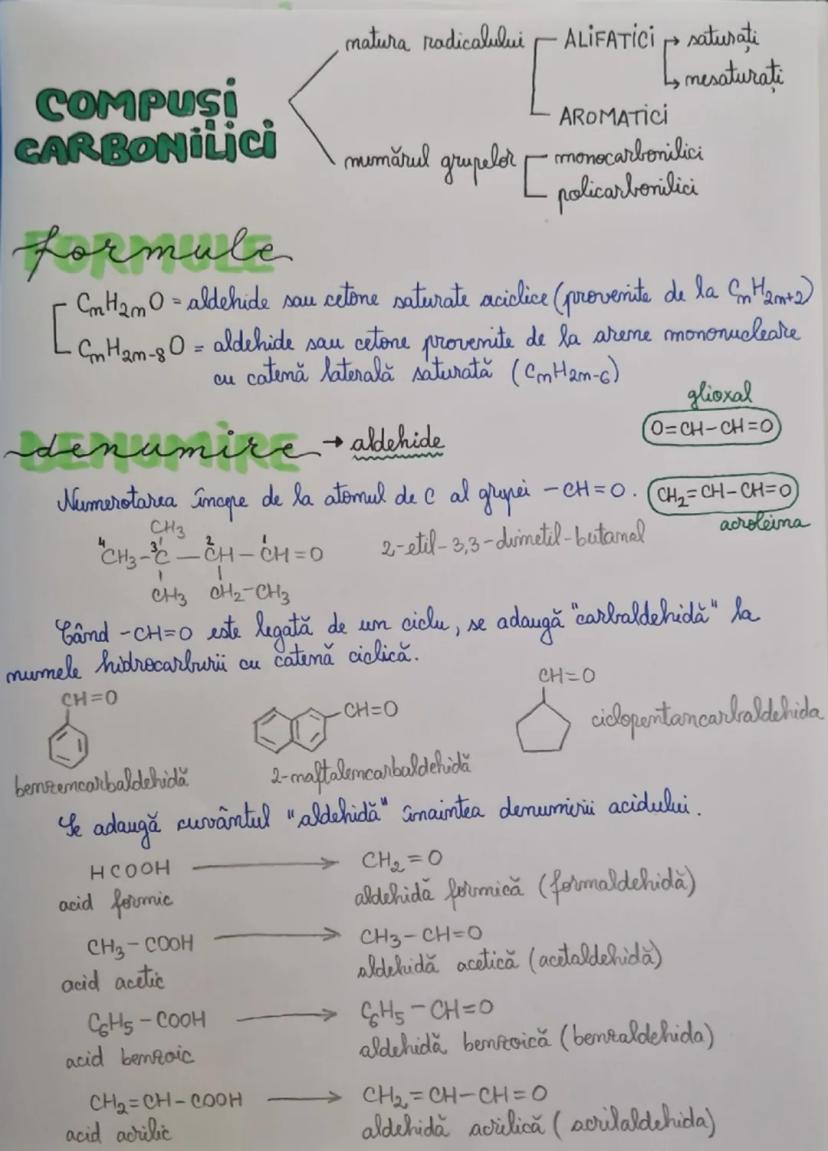 COMPUȘI
CARBONILICI
natura radicalului
ALIFATICI → saturați
↳ nesaturați
AROMATICI
numărul grupelor
monocarbonilici
policarbonilici
FORMULE
formule
CnH2nO = aldehide sau cetone saturate aciclice (provenite de la CnH2n+2)
CnH2n-8O = aldehide sau cetone provenite de la arene mononucleare
cu catenă laterală saturată (CnH2n-6)
glioxal
O=CH-CH=O
DENUMIRE
denumire → aldehide
Numerotarea începe de la atomul de C al grupei -CH=O.
CH2=CH-CH=O
acroleina
CH3
4 3 2 1
CH3-C-CH-CH=O
2-etil-3,3-dimetil-butanal
CH3 CH2-CH3
Când -CH=O este legată de un ciclu, se adaugă "carbaldehidă" la
numele hidrocarburii cu catenă ciclică.
CH=O
CH=O
CH=O
ciclopentancarbaldehida
benzencarbaldehidă
2-naftalencarbaldehidă
Se adaugă cuvântul "aldehidă" înaintea denumirii acidului.
HCOOH → CH2=O
acid formic
aldehidă formică (formaldehidă)
CH3-COOH → CH3-CH=O
acid acetic
aldehidă acetică (acetaldehidă)
C6H5-COOH → C6H5-CH=O
acid benzoic
aldehidă benzoică (benzaldehida)
CH2=CH-COOH → CH2=CH-CH=O
acid acrilic
aldehidă acrilică (acrilaldehida)